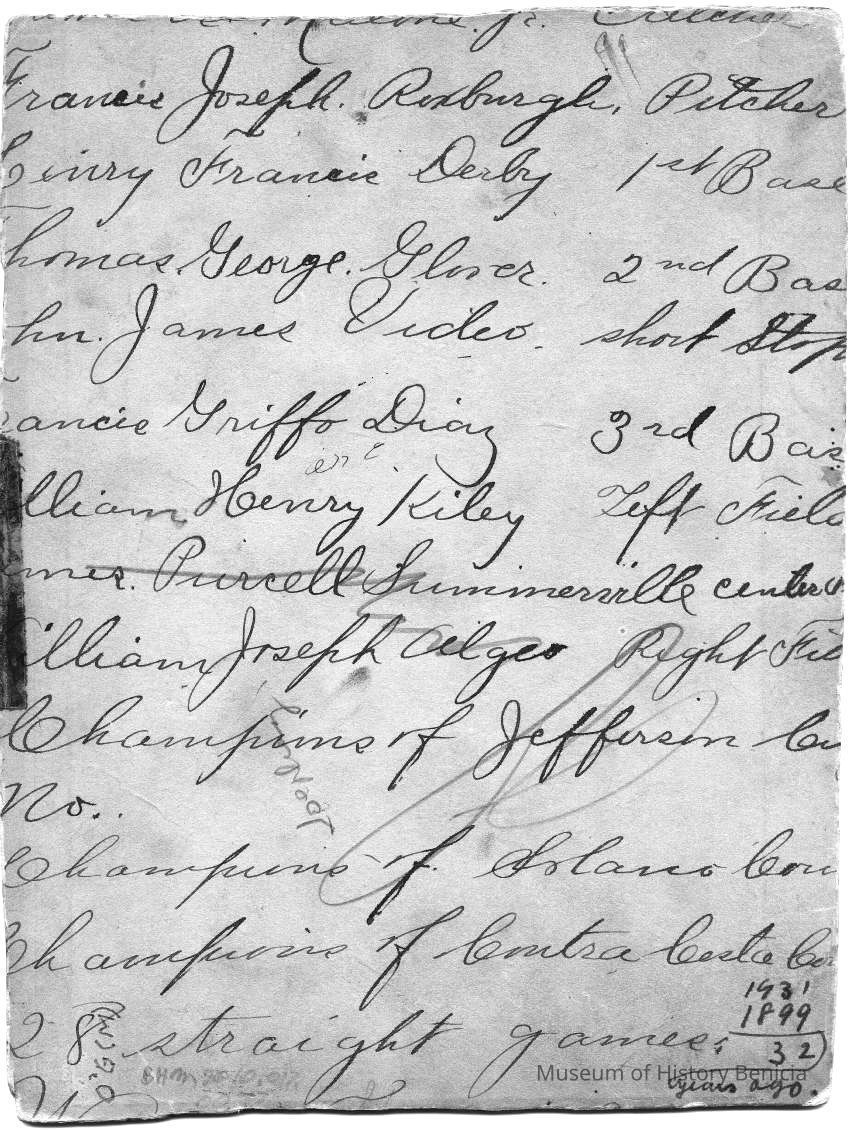 Malone. Jr. Catcher
Francis Joseph. Roxburgh, Pitcher
Henry Francis Derby 1st Base
Thomas George. Glover. 2nd Bas
hn. James Video. short Stop
ancis Griffo Diaz 3rd Bas
illiam Henry Kiley Left Field
mes. Purcell Summerville center
William Joseph Algeo Right Fie
Champions of Jefferson Cou
No..
Champions of Solano Cou
Champions of Contra Costa Co
28 straight games.
1931
1899
32
years ago.
Museum of History Benicia